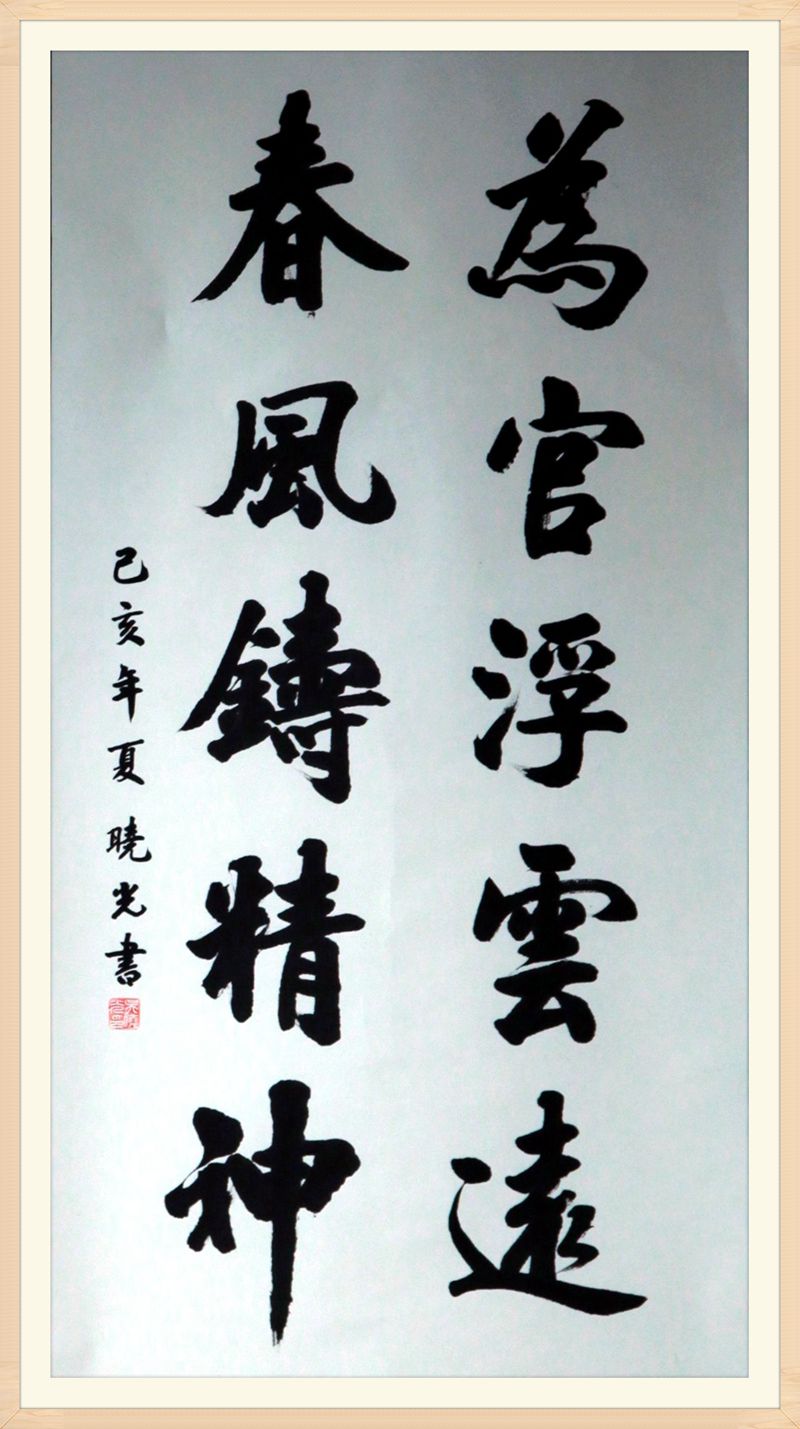 為官浮雲遠
春風鑄精神
己亥年夏曉光書